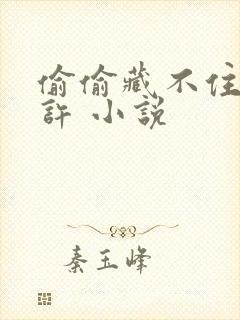 偷偷藏不住
許 小說
秦玉峰